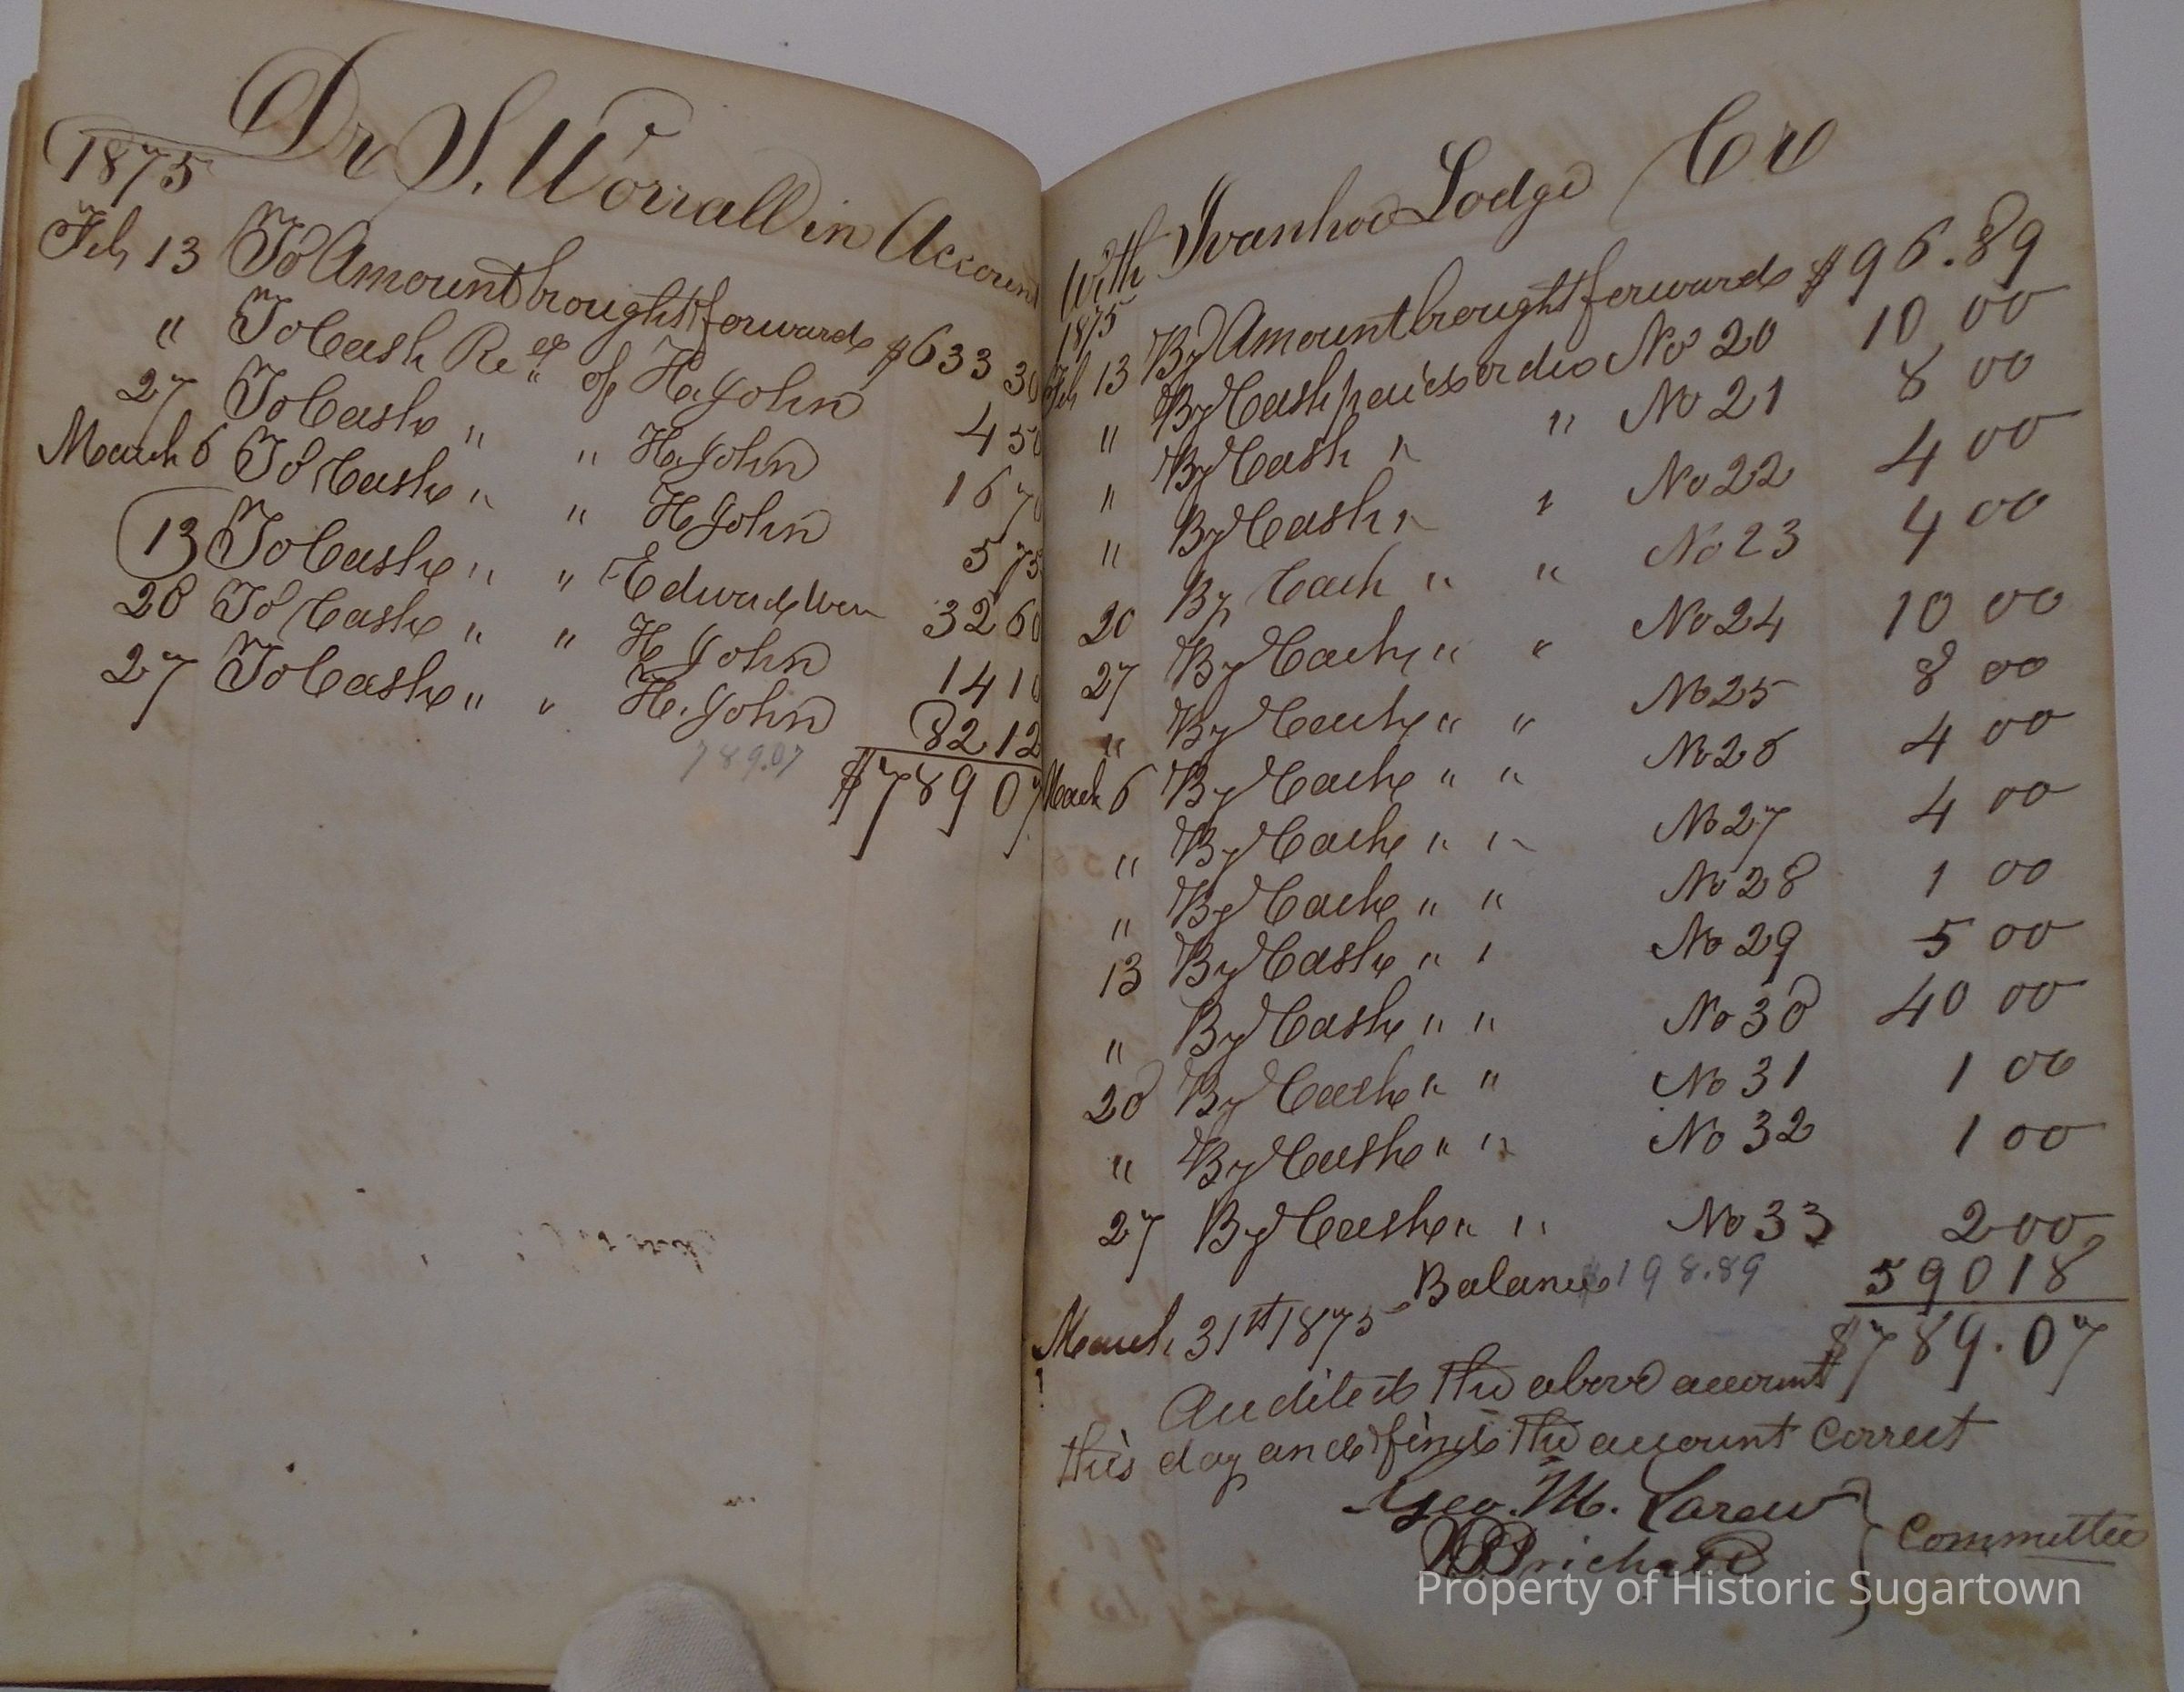 Dr S. Worrall in Account
1875
Feb 13 To Amount brought forward $633 30
" To Cash Recd of H. John 4 50
27 To Cash " " H. John 16 70
March 6 To Cash " " H John 5 75
13 To Cash " " Edward 32 60
20 To Cash " " H. John 14 10
27 To Cash " " H. John 82 12
789.07
$789 07
With Ivanhoe Lodge Cr
1875
Feb 13 By Amount brought forward $96.89
" By Cash paid order No 20 10 00
" By Cash " " No 21 8 00
" By Cash " " No 22 4 00
20 By Cash " " No 23 4 00
27 By Cash " " No 24 10 00
" By Cash " " No 25 8 00
March 6 By Cash " " No 26 4 00
" By Cash " " No 27 4 00
" By Cash " " No 28 1 00
13 By Cash " " No 29 5 00
" By Cash " " No 30 40 00
20 By Cash " " No 31 1 00
" By Cash " " No 32 1 00
27 By Cash " " No 33 2 00
Balance $198.89 590 18
$789.07
March 31st 1875
Audited the above account
this day and find the account correct
Geo. M. Larew
Prichard
Committee
Property of Historic Sugartown